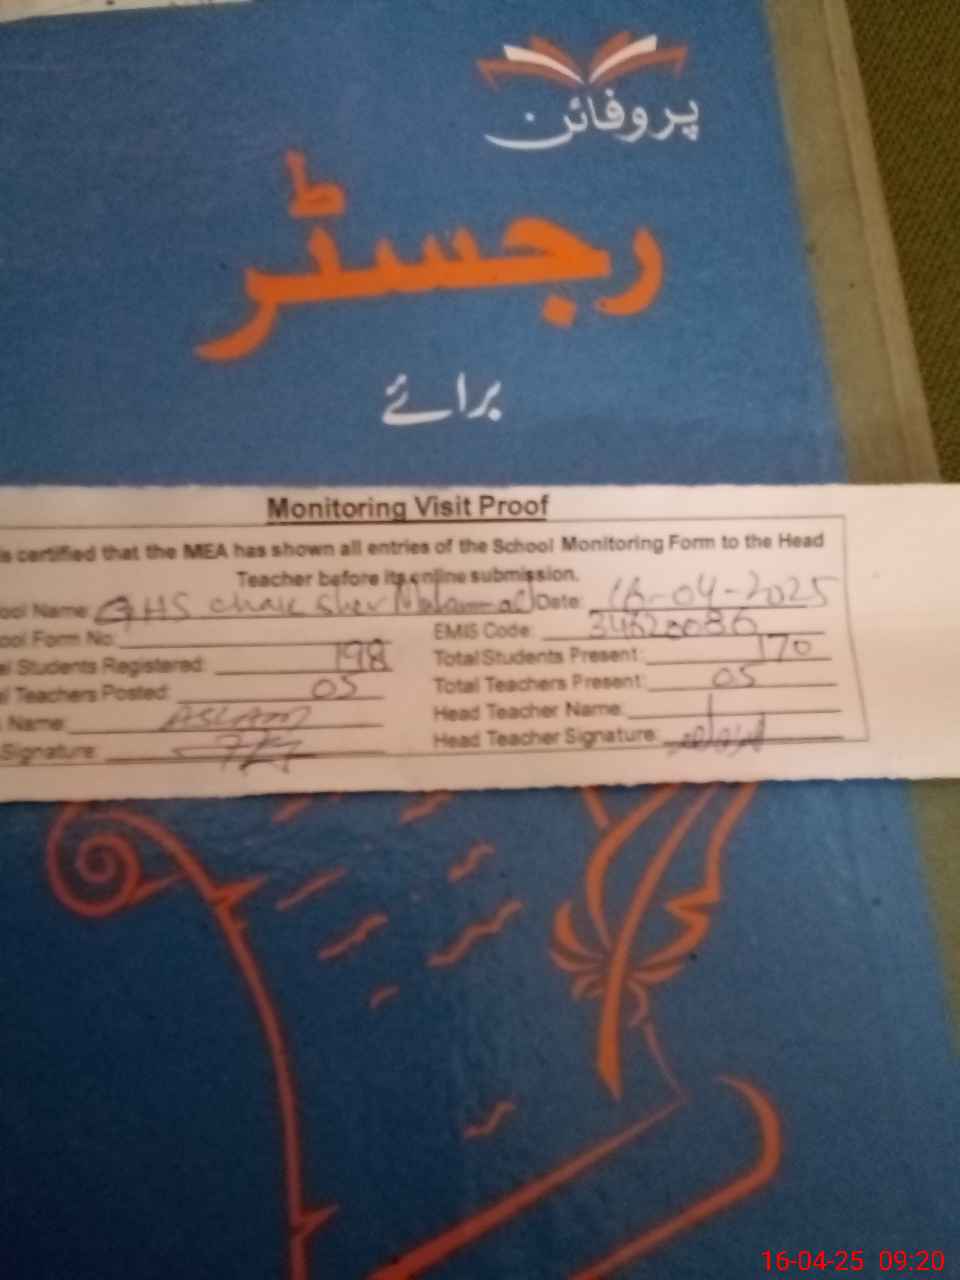 پروفائن
رجسٹر
برائے
Monitoring Visit Proof
is certified that the MEA has shown all entries of the School Monitoring Form to the Head
Teacher before its online submission.
ool Name: GHS chak sher Muhammad Date: 16-04-2025
ool Form No: EMIS Code: 34620086
al Students Registered: 198 Total Students Present: 170
al Teachers Posted: 05 Total Teachers Present: 05
Name: ASLAM Head Teacher Name:
Signature: Head Teacher Signature:
16-04-25 09:20